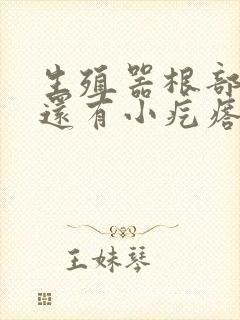 生殖器根部
還有小疙瘩
王妹琴